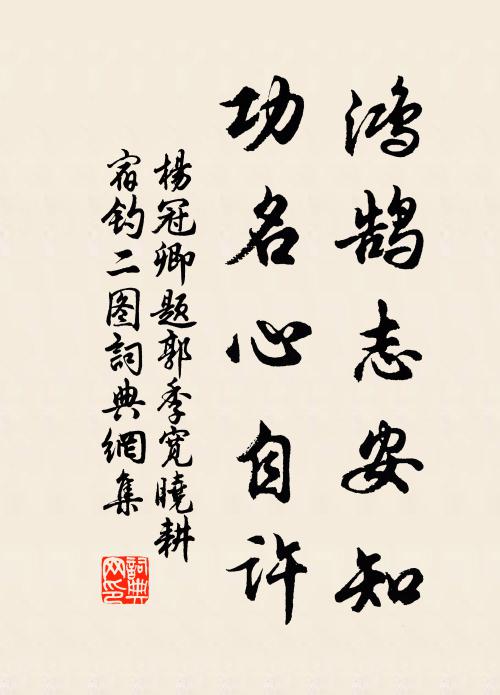 鸿鹄志安知
功名心自许
楊冠卿题郭季寛曉耕
宿钓二图詞典網集
詞典
网印